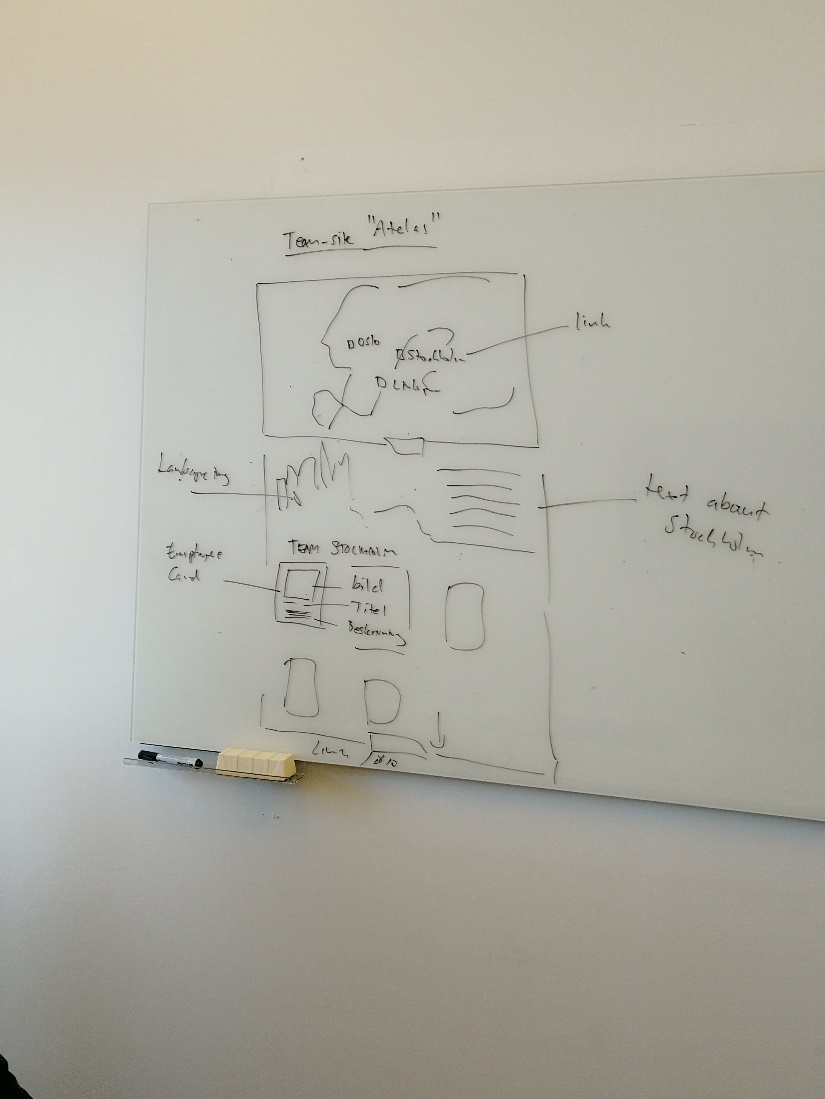 Team-site "Atelas"
Oslo
Stockholm
link
text about
Stockholm
TEAM STOCKHOLM
Employee
Card
bild
Titel
Beskrivning